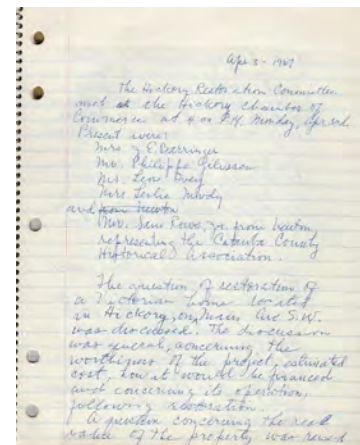 Apr 3 - 1967
The Hickory Restoration Committee
met at the Hickory Chamber of
Commerce at 4:00 P.M. Monday, April 3rd.
Present were:
Mrs. J. E. Barringer
Mr. Philippe
Mr. Leon
Mrs. Leslie Moody
and from Newton
Mr. Sam Rowe, Jr. from Newton
representing the Catawba County
Historical Association.
The question of restoration of
a Victorian home located
in Hickory, on Main Ave S.W.
was discussed. The discussion
was general, concerning the
worthiness of the project, estimated
cost, how it would be financed
and concerning its operation,
following restoration.
A question concerning the real
value of the property was raised